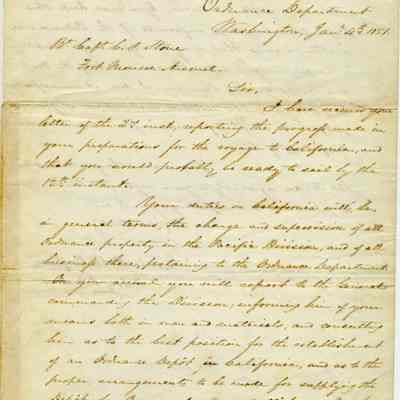 Ordnance Department
Washington, Jan. 4th 1851.
Bt. Capt. C. P. Stone
Fort Monroe Arsenal.
Sir,
I have received your
letter of the 2d inst, reporting the progress made in
your preparations for the voyage to California, and
that you would probably be ready to sail by the
15th instant.
Your duties in California will be,
in general terms, the charge and supervision of all
Ordnance property in the Pacific Division, and of all
business there, pertaining to the Ordnance Department.
On your arrival you will report to the General
commanding the Division, informing him of your
means both in men and materials, and consulting
him as to the best position for the establishment
of an Ordnance Depôt in California, and as to the
proper arrangements to be made for supplying the